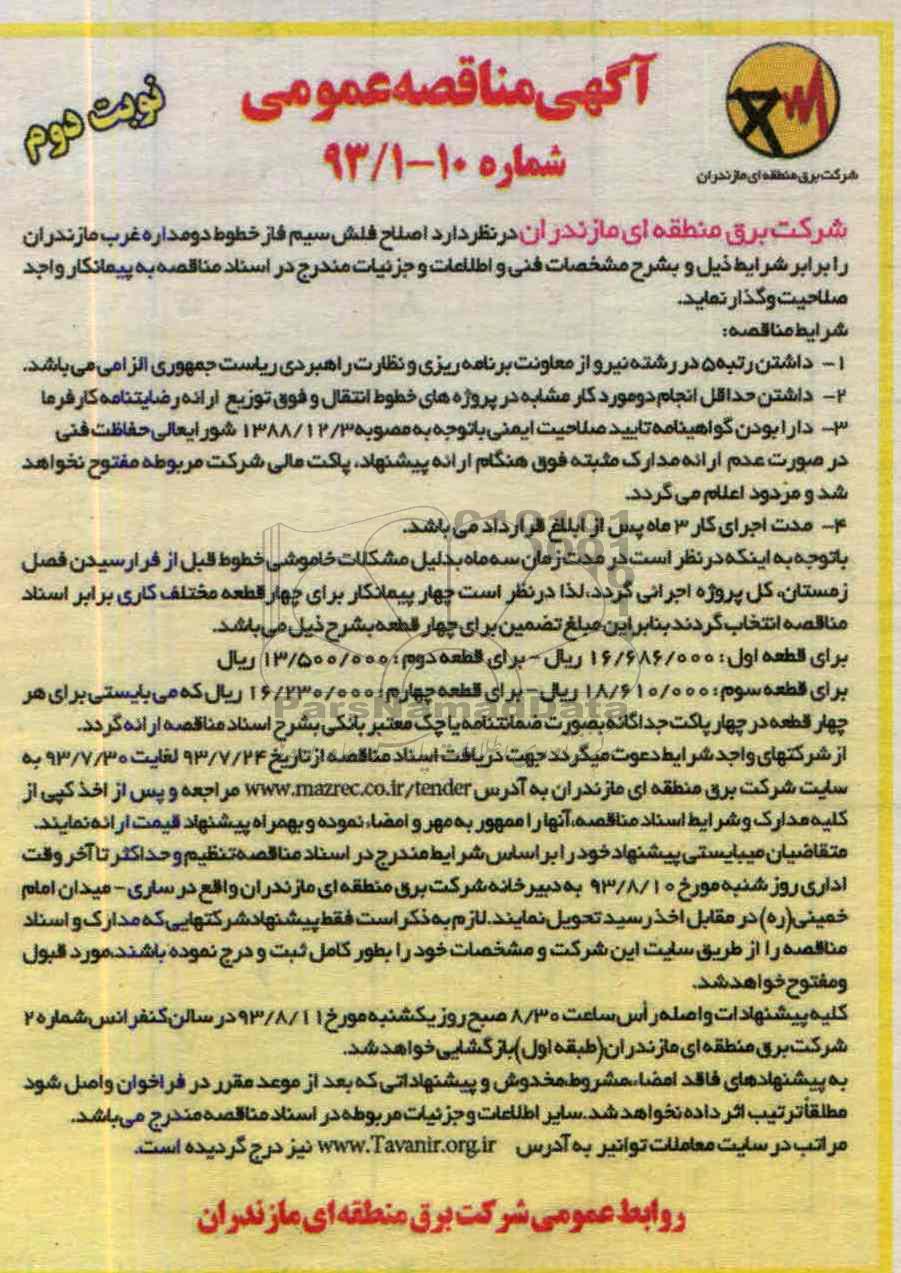 آگهی مناقصه عمومی
نوبت دوم
شماره ۱۰-۹۳/۱
شرکت برق منطقه ای مازندران
شرکت برق منطقه ای مازندران درنظر دارد اصلاح فلش سیم فاز خطوط دومداره غرب مازندران
را برابر شرایط ذیل و بشرح مشخصات فنی و اطلاعات و جزئیات مندرج در اسناد مناقصه به پیمانکار واجد
صلاحیت وگذار نماید.
شرایط مناقصه:
۱- داشتن رتبه۵ در رشته نیرو از معاونت برنامه ریزی و نظارت راهبردی ریاست جمهوری الزامی می باشد.
۲- داشتن حداقل انجام دومورد کار مشابه در پروژه های خطوط انتقال و فوق توزیع ارائه رضایتنامه کارفرما
۳- دارا بودن گواهینامه تایید صلاحیت ایمنی باتوجه به مصوبه ۱۳۸۸/۱۲/۳ شورایعالی حفاظت فنی
در صورت عدم ارائه مدارک مثبته فوق هنگام ارائه پیشنهاد، پاکت مالی شرکت مربوطه مفتوح نخواهد
شد و مردود اعلام می گردد.
۴- مدت اجرای کار ۳ ماه پس از ابلاغ قرارداد می باشد.
باتوجه به اینکه در نظر است در مدت زمان سه ماه بدلیل مشکلات خاموشی خطوط قبل از فرارسیدن فصل
زمستان، کل پروژه اجرائی گردد، لذا درنظر است چهار پیمانکار برای چهار قطعه مختلف کاری برابر اسناد
مناقصه انتخاب گردند بنابراین مبلغ تضمین برای چهار قطعه بشرح ذیل می باشد.
برای قطعه اول: ۱۶/۶۸۶/۰۰۰ ریال - برای قطعه دوم: ۱۳/۵۰۰/۰۰۰ ریال
برای قطعه سوم: ۱۸/۶۱۰/۰۰۰ ریال - برای قطعه چهارم: ۱۶/۲۳۰/۰۰۰ ریال که می بایستی برای هر
چهار قطعه در چهار پاکت جداگانه بصورت ضمانتنامه یا چک معتبر بانکی بشرح اسناد مناقصه ارائه گردد.
از شرکتهای واجد شرایط دعوت میگردد جهت دریافت اسناد مناقصه از تاریخ ۹۳/۷/۲۴ لغایت ۹۳/۷/۳۰ به
سایت شرکت برق منطقه ای مازندران به آدرس www.mazrec.co.ir/tender مراجعه و پس از اخذ کپی از
کلیه مدارک و شرایط اسناد مناقصه، آنها را ممهور به مهر و امضاء نموده و بهمراه پیشنهاد قیمت ارائه نمایند.
متقاضیان میبایستی پیشنهاد خود را بر اساس شرایط مندرج در اسناد مناقصه تنظیم و حداکثر تا آخر وقت
اداری روز شنبه مورخ ۹۳/۸/۱۰ به دبیرخانه شرکت برق منطقه ای مازندران واقع در ساری - میدان امام
خمینی(ره) در مقابل اخذ رسید تحویل نمایند. لازم به ذکر است فقط پیشنهاد شرکتهایی که مدارک و اسناد
مناقصه را از طریق سایت این شرکت و مشخصات خود را بطور کامل ثبت و درج نموده باشند، مورد قبول
ومفتوح خواهد شد.
کلیه پیشنهادات واصله رأس ساعت ۸/۳۰ صبح روز یکشنبه مورخ ۹۳/۸/۱۱ در سالن کنفرانس شماره ۲
شرکت برق منطقه ای مازندران(طبقه اول) بازگشایی خواهد شد.
به پیشنهادهای فاقد امضاء، مشروط، مخدوش و پیشنهاداتی که بعد از موعد مقرر در فراخوان واصل شود
مطلقاً ترتیب اثر داده نخواهد شد. سایر اطلاعات و جزئیات مربوطه در اسناد مناقصه مندرج می باشد.
مراتب در سایت معاملات توانیر به آدرس www.Tavanir.org.ir نیز درج گردیده است.
روابط عمومی شرکت برق منطقه ای مازندران
ParsNamadData